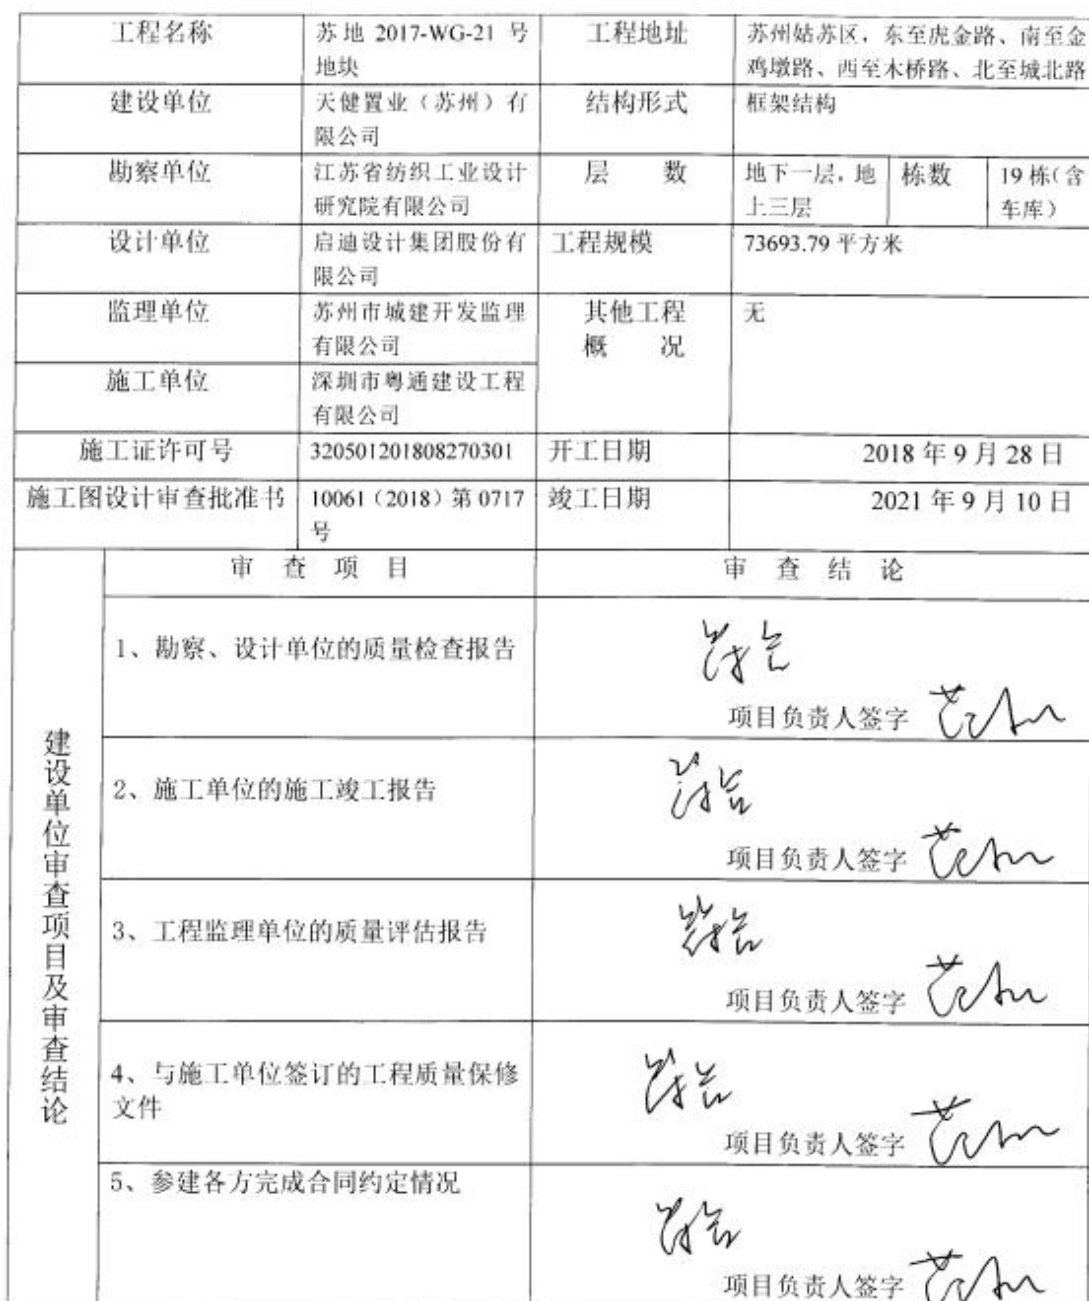 工程名称 苏地 2017-WG-21 号 工程地址 苏州姑苏区，东至虎金路、南至金
地块 鸡墩路、西至木桥路、北至城北路
建设单位 天健置业（苏州）有 结构形式 框架结构
限公司
勘察单位 江苏省纺织工业设计 层 数 地下一层，地 栋数 19 栋(含
研究院有限公司 上三层 车库）
设计单位 启迪设计集团股份有 工程规模 73693.79 平方米
限公司
监理单位 苏州市城建开发监理 其他工程 无
有限公司 概 况
施工单位 深圳市粤通建设工程
有限公司
施工证许可号 320501201808270301 开工日期 2018 年 9 月 28 日
施工图设计审查批准书 10061（2018）第 0717 竣工日期 2021 年 9 月 10 日
号
审 查 项 目 审 查 结 论
建设单位审查项目及审查结论
1、勘察、设计单位的质量检查报告 符合
项目负责人签字
2、施工单位的施工竣工报告 符合
项目负责人签字
3、工程监理单位的质量评估报告 符合
项目负责人签字
4、与施工单位签订的工程质量保修 符合
文件
项目负责人签字
5、参建各方完成合同约定情况 符合
项目负责人签字